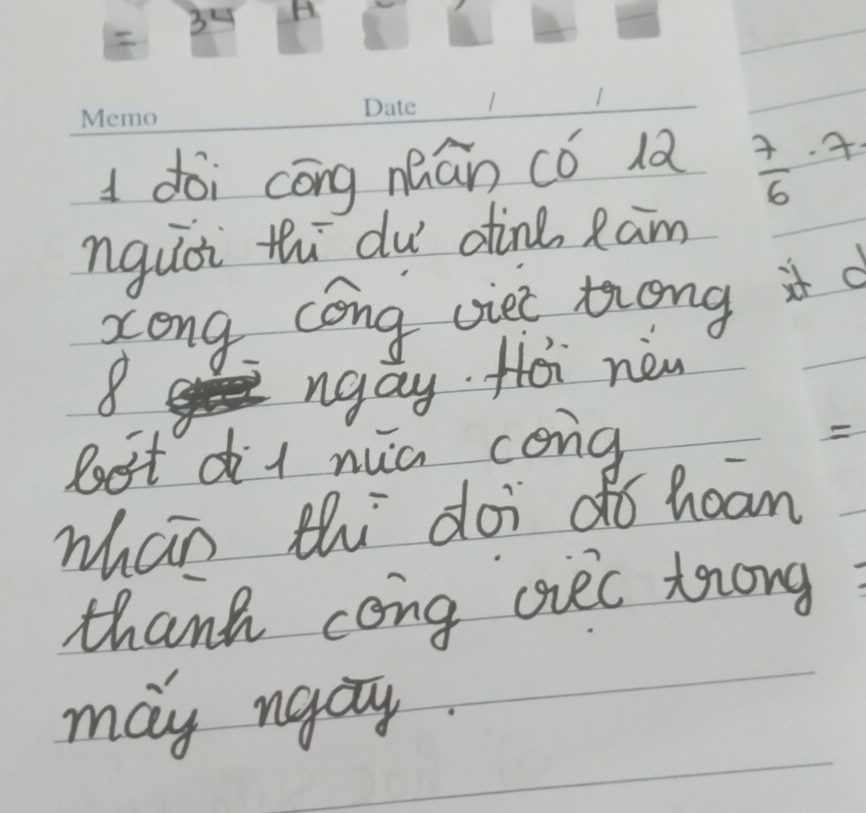 = 34 A
Memo Date / /
1 đội công nhân có 12
người thì dự định làm
xong công việc trong
8 ngày. Hỏi nếu
bớt đi 1 nửa công
nhân thì đội đó hoàn
thành công việc trong
mấy ngày.
7/6 . 7
=